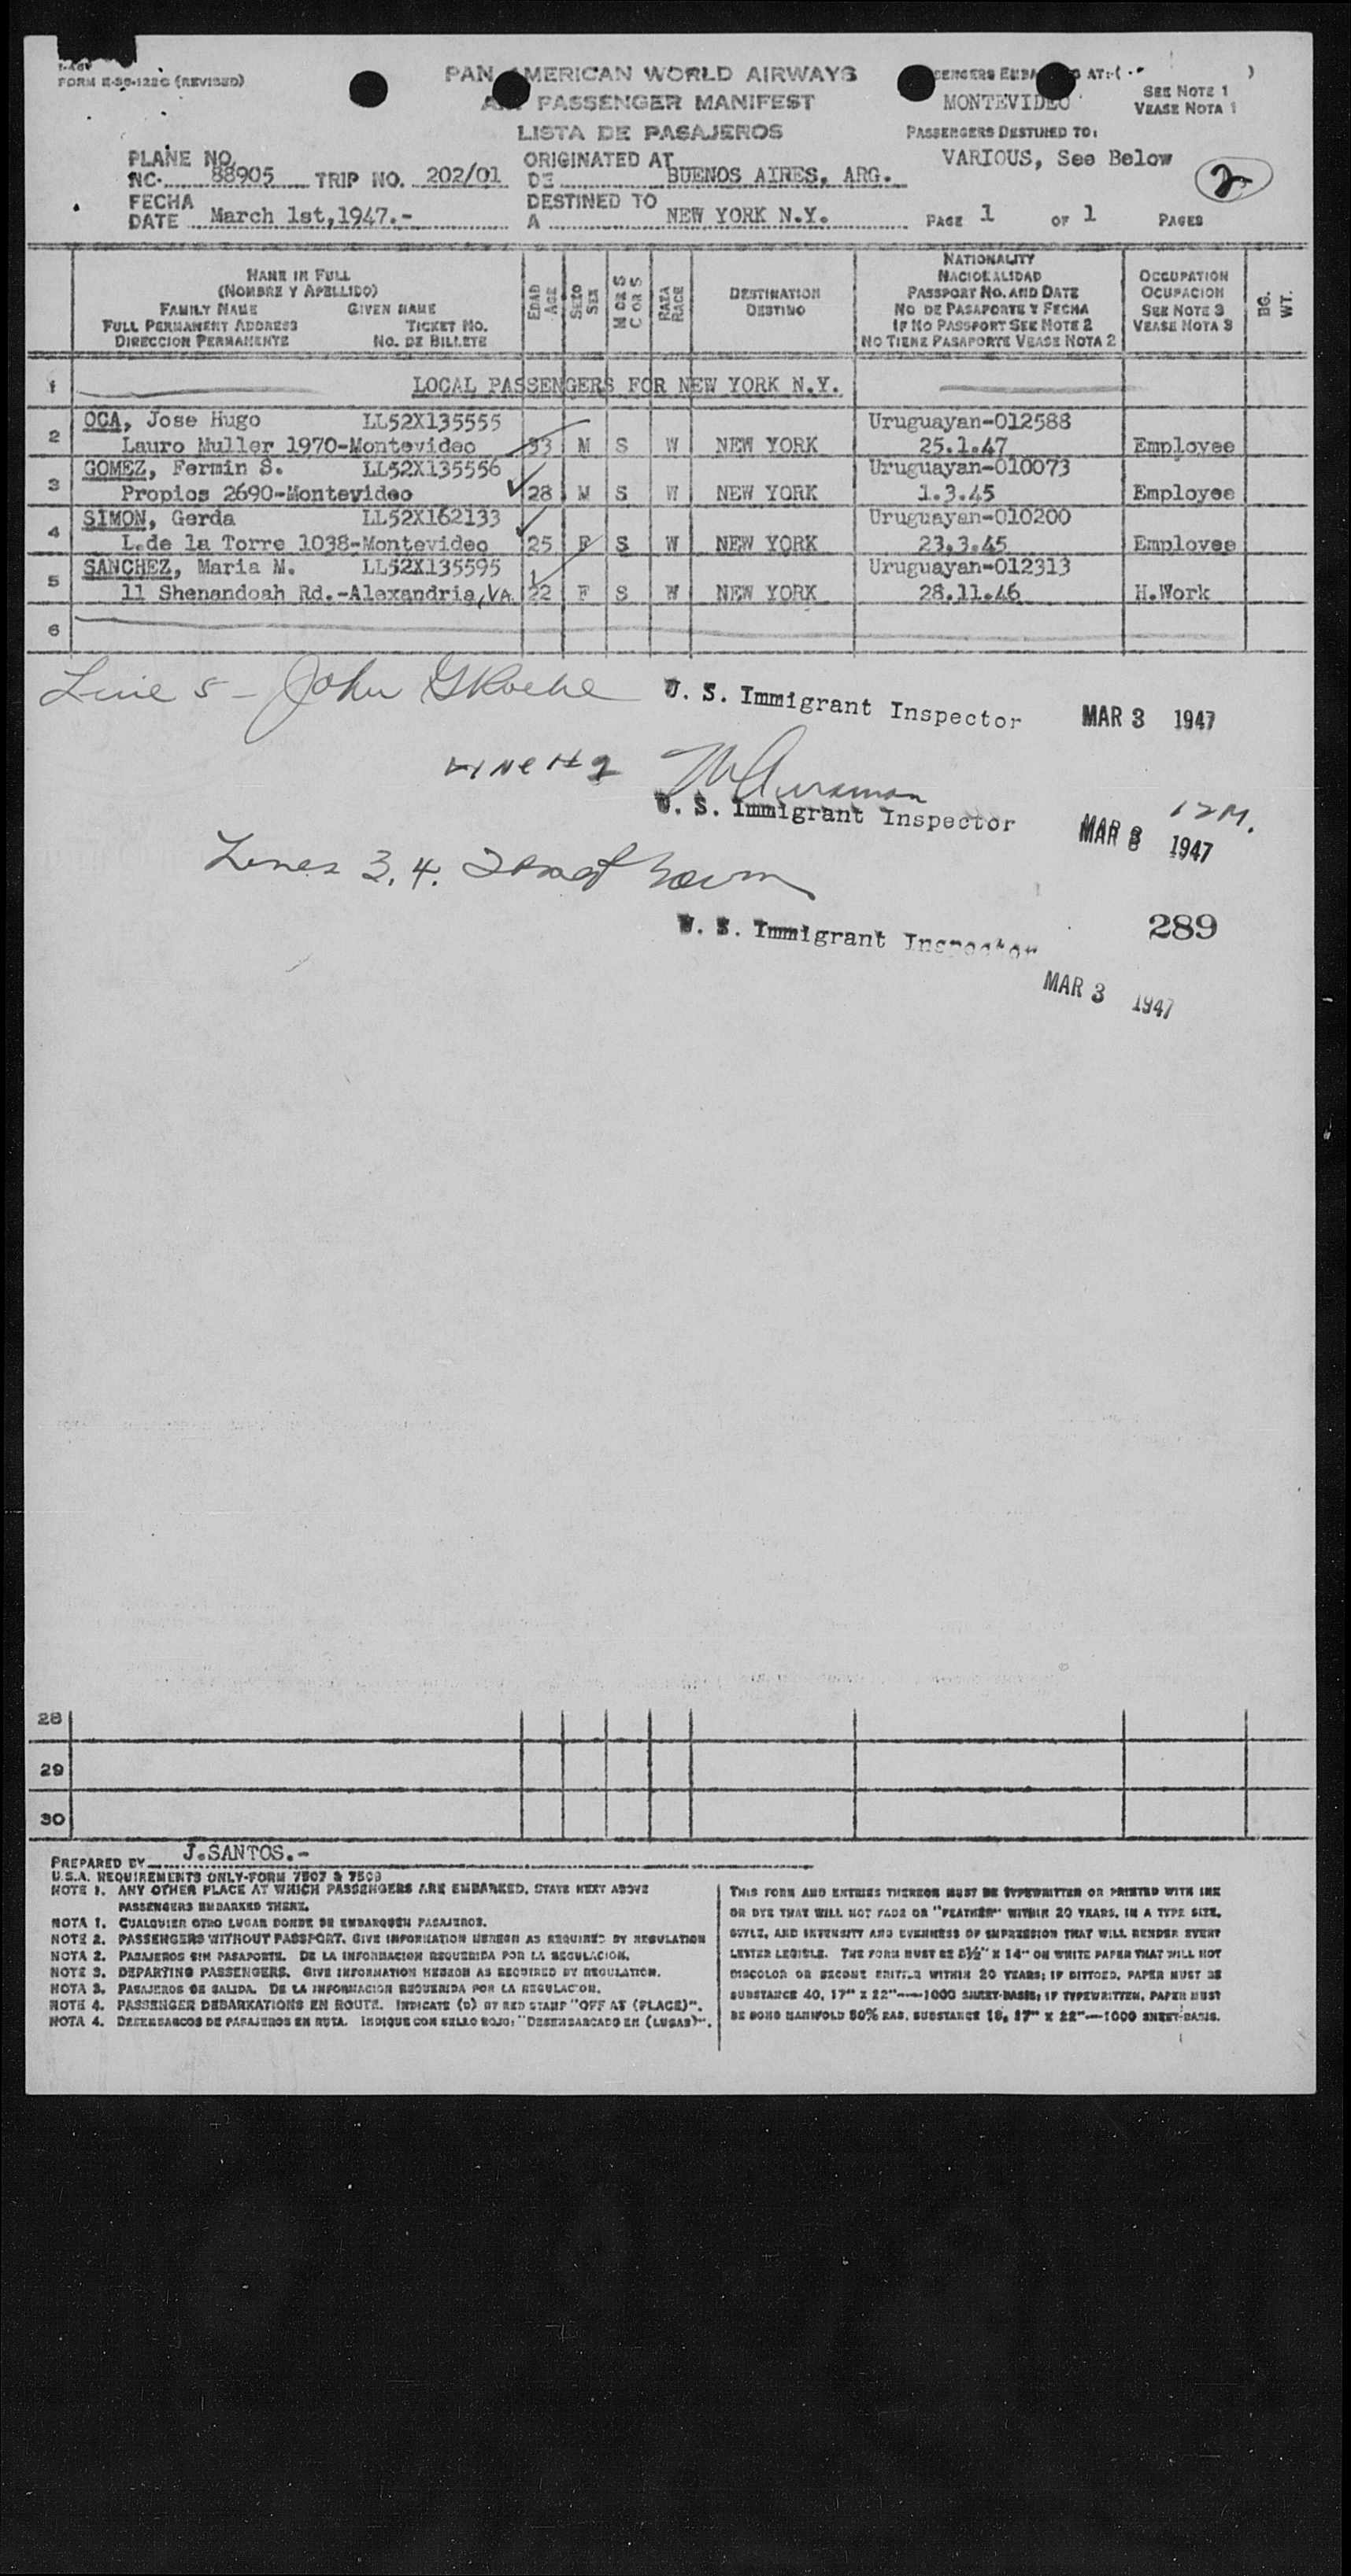 FORM E-36-122C (REVISED)
PAN AMERICAN WORLD AIRWAYS
PASSENGER MANIFEST
LISTA DE PASAJEROS
AT:-( )
MONTEVIDEO
SEE NOTE 1
VEASE NOTA 1
PASSENGERS DESTINED TO:
VARIOUS, See Below
2
PLANE NO.
NC. 88905 TRIP NO. 202/01
ORIGINATED AT
DE BUENOS AIRES, ARG.
FECHA
DATE March 1st,1947.-
DESTINED TO
A NEW YORK N.Y.
PAGE 1 OF 1 PAGES
NAME IN FULL
(NOMBRE Y APELLIDO)
FAMILY NAME GIVEN NAME
FULL PERMANENT ADDRESS TICKET NO.
DIRECCION PERMANENTE NO. DE BILLETE
EDAD
AGE
SEXO
SEX
M OR S
C OR S
RAZA
RACE
DESTINATION
DESTINO
NATIONALITY
NACIONALIDAD
PASSPORT NO. AND DATE
NO DE PASAPORTE Y FECHA
IF NO PASSPORT SEE NOTE 2
NO TIENE PASAPORTE VEASE NOTA 2
OCCUPATION
OCUPACION
SEE NOTE 3
VEASE NOTA 3
BG.
WT.
1 LOCAL PASSENGERS FOR NEW YORK N.Y.
2 OCA, Jose Hugo LL52X135555 Uruguayan-012588
Lauro Muller 1970-Montevideo 33 M S W NEW YORK 25.1.47 Employee
3 GOMEZ, Fermin S. LL52X135556 Uruguayan-010073
Propios 2690-Montevideo 28 M S W NEW YORK 1.3.45 Employee
4 SIMON, Gerda LL52X162133 Uruguayan-010200
L.de la Torre 1038-Montevideo 25 F S W NEW YORK 23.3.45 Employee
5 SANCHEZ, Maria M. LL52X135595 Uruguayan-012313
11 Shenandoah Rd.-Alexandria, VA. 22 F S W NEW YORK 28.11.46 H.Work
6
Line 5 - John U. S. Immigrant Inspector MAR 3 1947
Line # 2
U. S. Immigrant Inspector 12M.
MAR 3 1947
Lines 3, 4.
U. S. Immigrant Inspector 289
MAR 3 1947
28
29
30
PREPARED BY J.SANTOS.-
U.S.A. REQUIREMENTS ONLY-FORM 7507 & 7509
NOTE 1. ANY OTHER PLACE AT WHICH PASSENGERS ARE EMBARKED, STATE NEXT ABOVE
PASSENGERS EMBARKED THERE.
NOTA 1. CUALQUIER OTRO LUGAR DONDE SE EMBARQUEN PASAJEROS.
NOTE 2. PASSENGERS WITHOUT PASSPORT. GIVE INFORMATION HEREON AS REQUIRED BY REGULATION
NOTA 2. PASAJEROS SIN PASAPORTE. DE LA INFORMACION REQUERIDA POR LA REGULACION.
NOTE 3. DEPARTING PASSENGERS. GIVE INFORMATION HEREON AS REQUIRED BY REGULATION.
NOTA 3. PASAJEROS DE SALIDA. DE LA INFORMACION REQUERIDA POR LA REGULACION.
NOTE 4. PASSENGER DEBARKATIONS EN ROUTE. INDICATE (D) BY RED STAMP "OFF AT (PLACE)".
NOTA 4. DESEMBARCOS DE PASAJEROS EN RUTA. INDIQUE CON SELLO ROJO: "DESEMBARCADO EN (LUGAR)".
THIS FORM AND ENTRIES THEREON MUST BE TYPEWRITTEN OR PRINTED WITH INK
OR DYE THAT WILL NOT FADE OR "FEATHER" WITHIN 20 YEARS, IN A TYPE SIZE,
STYLE, AND INTENSITY AND EVENNESS OF IMPRESSION THAT WILL RENDER EVERY
LETTER LEGIBLE. THE FORM MUST BE 8½" X 14" ON WHITE PAPER THAT WILL NOT
DISCOLOR OR BECOME BRITTLE WITHIN 20 YEARS; IF DITTOED, PAPER MUST BE
SUBSTANCE 40, 17" X 22"—1000 SHEET-BASIS; IF TYPEWRITTEN, PAPER MUST
BE BOND MANIFOLD 50% RAG, SUBSTANCE 16, 17" X 22"—1000 SHEET-BASIS.